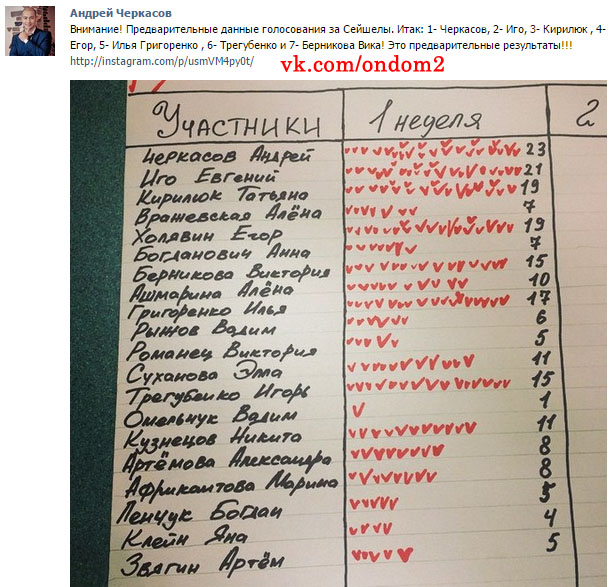 Андрей Черкасов
Внимание! Предварительные данные голосования за Сейшелы. Итак: 1- Черкасов, 2- Иго, 3- Кирилюк , 4-
Егор, 5- Илья Григоренко , 6- Трегубенко и 7- Берникова Вика! Это предварительные результаты!!!
http://instagram.com/p/usmVM4py0t/
vk.com/ondom2
Участники 1 неделя 2
Черкасов Андрей 23
Иго Евгений 21
Кирилюк Татьяна 19
Вражевская Алёна 7
Холявин Егор 19
Богданович Анна 7
Берникова Виктория 15
Ашмарина Алёна 10
Григоренко Илья 17
Рыжов Вадим 6
Романец Виктория 5
Суханова Элла 11
Трегубенко Игорь 15
Омельчук Вадим 1
Кузнецов Никита 11
Артёмова Александра 8
Африкантова Марина 8
Ленчук Богдан 5
Клейн Яна 4
Звягин Артём 5